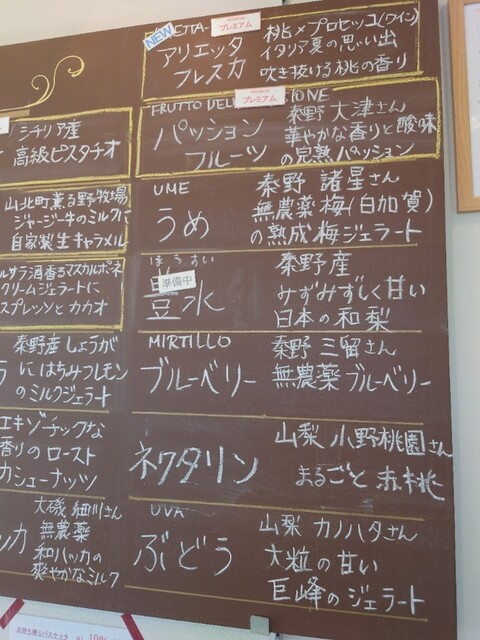 NEW
プレミアム
アリエッタ
フレスカ
桃×プロセッコ(ワイン)
イタリア夏の思い出
吹き抜ける桃の香り
プレミアム
パッション
フルーツ
秦野 大津さん
華やかな香りと酸味
の完熟パッション
UME
うめ
秦野 諸星さん
無農薬梅(白加賀)
の熟成梅ジェラート
ほうすい
準備中
豊水
秦野産
みずみずしく甘い
日本の和梨
MIRTILLO
ブルーベリー
秦野 三留さん
無農薬ブルーベリー
ネクタリン
山梨 小野桃園さん
まるごと赤桃
UVA
ぶどう
山梨 カノハタさん
大粒の甘い
巨峰のジェラート
シチリア産
高級ピスタチオ
山北町薫る野牧場
ジャージー牛のミルクに
自家製生キャラメル
ルサラ酒香るマスカルポーネ
クリームジェラートに
スプレッソとカカオ
秦野産しょうが
にはちみつレモン
のミルクジェラート
エキゾチックな
香りのロースト
カシューナッツ
ッカ
大磯 細川さん
無農薬
和ハッカの
爽やかなミルク